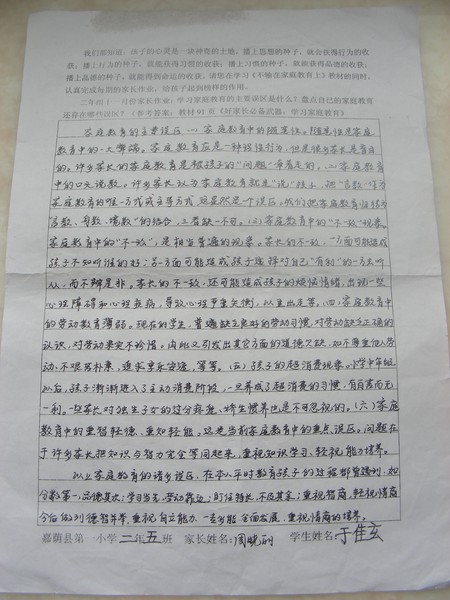 我们都知道：孩子的心灵是一块神奇的土地，播上思想的种子，就会获得行为的收
获；播上行为的种子，就能获得习惯的收获；播上习惯的种子，就能获得品德的收获；
播上品德的种子，就能得到命运的收获。请您在学习《不输在家庭教育上》教材的同时，
认真完成每期的家长作业，给孩子起到榜样的作用。
二年级十一月份家长作业：学习家庭教育的主要误区是什么？盘点自己的家庭教育
还存在哪些误区？（参考答案：教材91页《好家长必备武器：学习家庭教育》）
家庭教育的主要误区(一)家庭教育中的随意性。随意性是家庭
教育中的一大弊端。家庭教育应是一种经常性行为，但是很多家长盲
目的。许多家长的家庭教育是被孩子的"问题"牵着走的。(二)家庭教育
中的口头说教。许多家长认为家庭教育就是"说"孩子，把"言教"作为
家庭教育的唯一方式或主导方式，这显然是个误区，我们把家庭教育归结为
言教、身教、境教"的结合，三者缺一不可。(三)家庭教育中的"不一致"现象。
家庭教育中的"不一致"，是相当普遍的现象。家长的不一致，一方面可能造成
孩子不知听谁的好；另一方面可能造成孩子选择对自己"有利"的一方去听
从，而不辨是非。家长的不一致，还可能造成孩子的烦恼情绪，出现一些
心理障碍和心理疾病，导致心理严重失衡，以至出走等。(四)家庭教育中
的劳动教育薄弱。现在的学生，普遍缺乏良好的劳动习惯，对劳动缺乏正确的
认识，对劳动果实不珍惜。由此又引发出其它方面的道德欠缺，如不尊重他人劳
动，不艰苦朴素，追求享乐安逸，等等。(五)孩子的超消费现象。小学中年级
以后，孩子渐渐进入了主动消费阶段，一旦养成了超消费的习惯，有百害而无
一利。一些家长对独生子女的过分爱宠、娇生惯养也是不可忽视的。(六)家庭
教育中的重智轻德、重知轻能。这是当前家庭教育中的重点误区。问题在
于许多家长把知识与智力完全等同起来，重视知识学习，轻视能力培养。
以上家庭教育的诸多误区，在本人平时教育孩子的过程都曾遇到，如
分数第一，品德其次；学习当先，劳动靠边；盯住特长，不及其余；重视智商，轻视情商
今后做到德智并举，重视自立能力，一专多能，全面发展，重视情商的培养。
嘉荫县第一小学二年五班 家长姓名：周晓丽 学生姓名：于佳玄